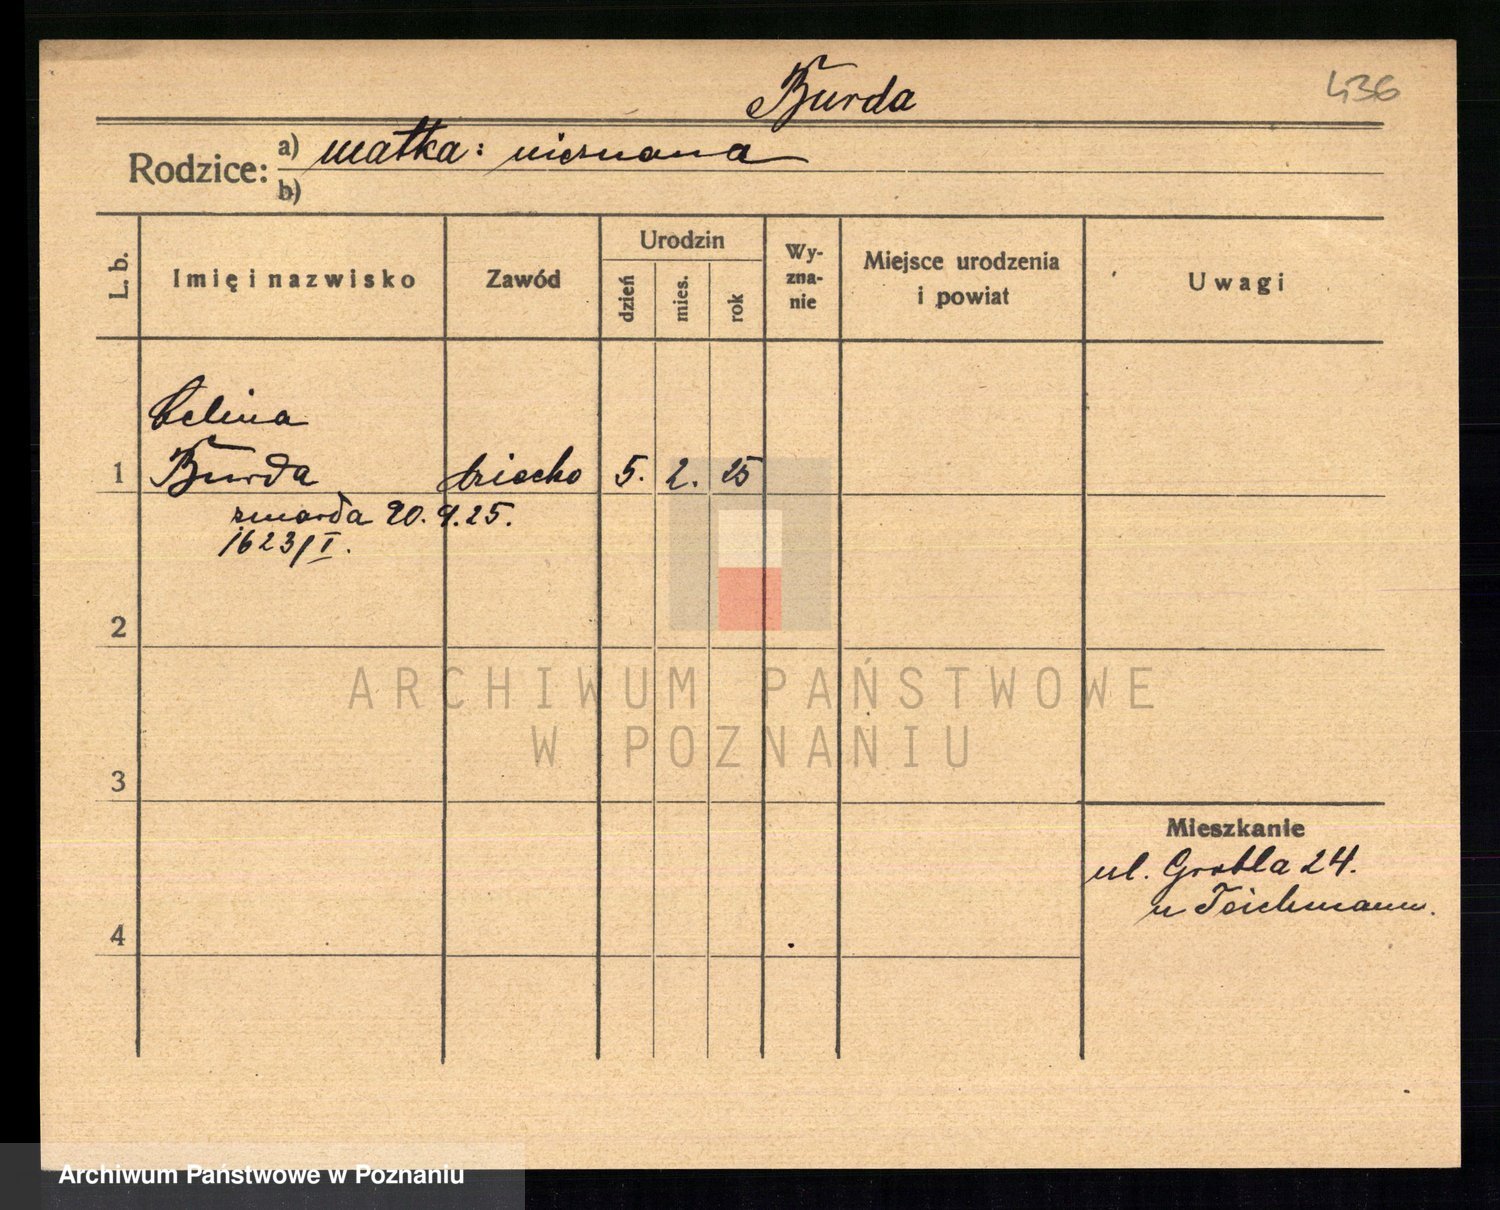 Burda
436
Rodzice:
a) matka: nieznana
b)
L. b.
Imię i nazwisko
Zawód
Urodzin
dzień
mies.
rok
Wy-
zna-
nie
Miejsce urodzenia
i powiat
Uwagi
Celina
1 Burda dziecko 5. 2. 25
zmarła 20.9.25.
1623/I.
2
ARCHIWUM PAŃSTWOWE
W POZNANIU
3
Mieszkanie
ul. Grobla 24.
u Teichmann.
4
Archiwum Państwowe w Poznaniu